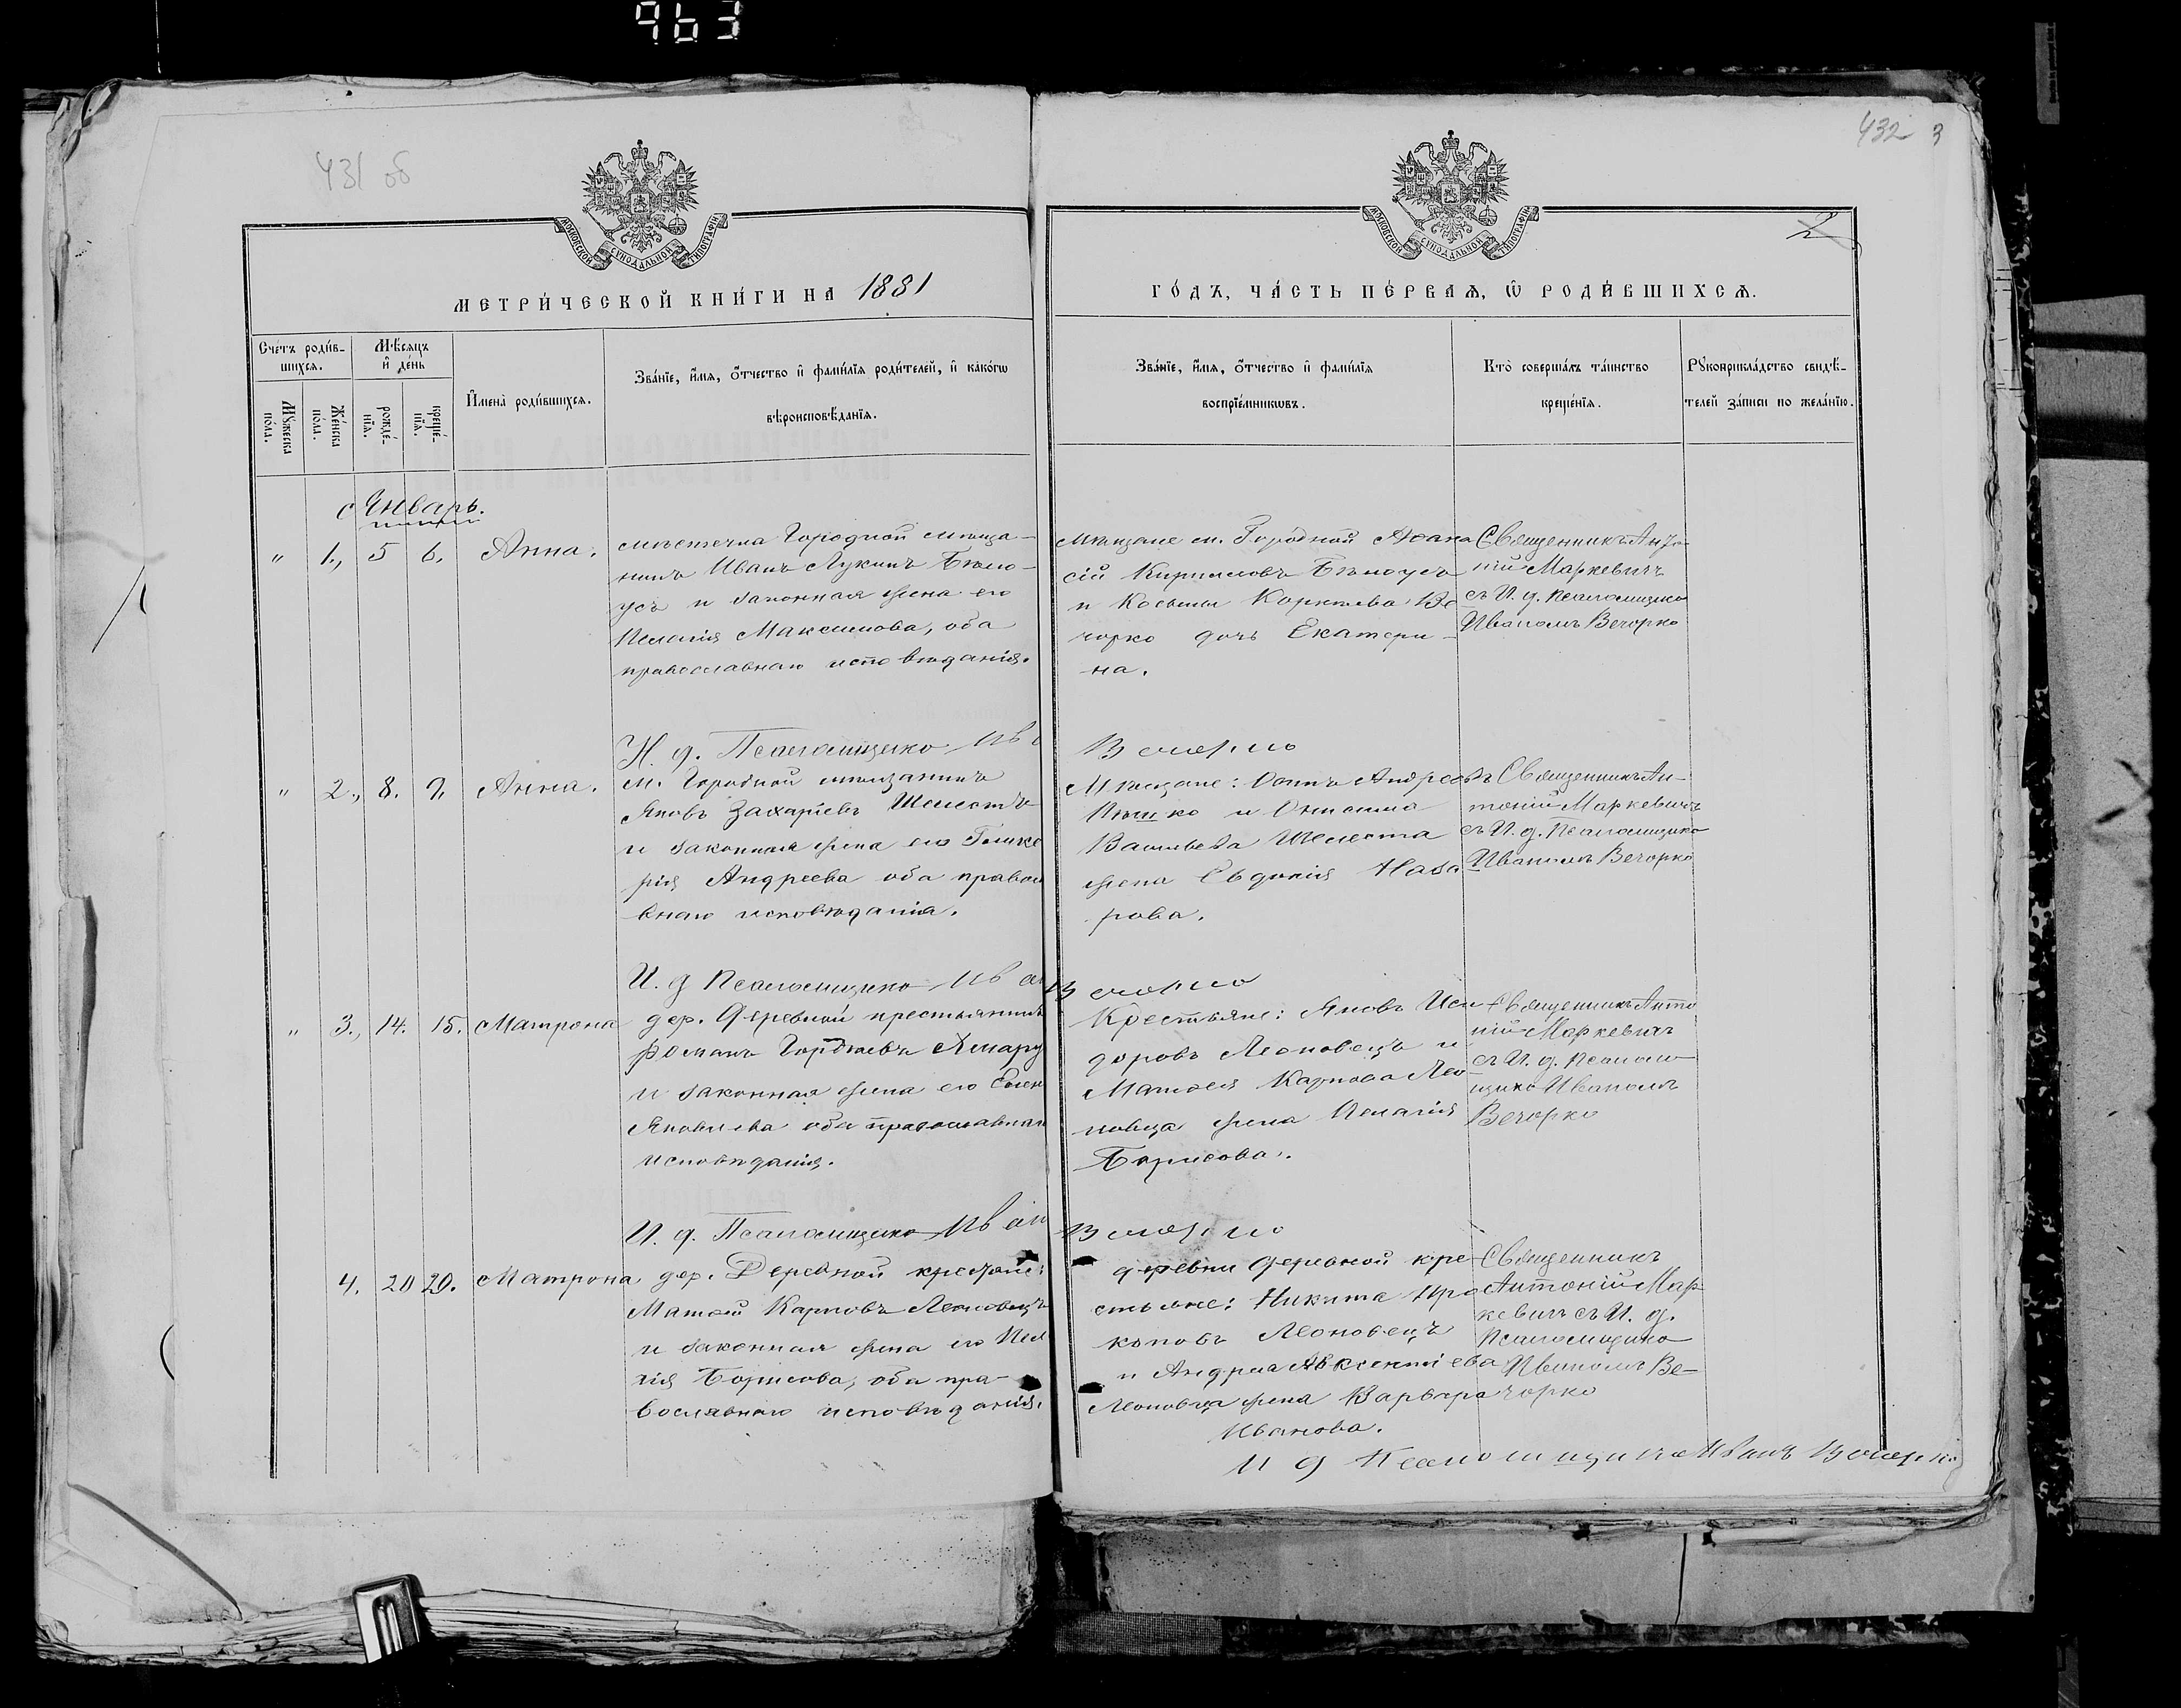 963
431 об
432 3
2
МОСКОВСКОЙ СУНОДАЛЬНОЙ ТИПОГРАФІИ
МОСКОВСКОЙ СУНОДАЛЬНОЙ ТИПОГРАФІИ
МЕТРИ́ЧЕСКОЙ КНИ́ГИ НА 1881
ГО́ДЪ, ЧА́СТЬ ПЕ́РВАѦ, Ѡ҆ РОДИ́ВШИХСѦ.
Сче́тъ роди́в-
шихсѧ.
Мѣ́сѧцъ
и҆ де́нь
Мꙋ́жеска
по́ла.
Же́нска
по́ла.
рожде́-
нїѧ.
креще́-
нїѧ.
И҆мена̀ роди́вшихсѧ.
Зва́нїе, и҆́мѧ, ѻ҆́тчество и҆ фами́лїѧ роди́телей, и҆ како́гѡ
вѣроисповѣ́данїѧ.
Зва́нїе, и҆́мѧ, ѻ҆́тчество и҆ фами́лїѧ
воспрїе́мникѡвъ.
Кто̀ соверша́лъ та́инство
креще́нїѧ.
Рꙋкоприкла́дство свидѣ́-
телей за́писи по жела́нїю.
Январь.
" 1., 5 6. Анна.
мѣстечка Городной мѣща-
нинъ Иванъ Лукинъ Бѣло-
усъ и законная жена его
Пелагія Максимова, оба
православнаго исповѣданія.
Мѣщане м. Городной Афана
сій Кирилловъ Бѣлоусъ
и Косьмы Корнѣева Ве
чорко дочь Екатери-
на.
Священникъ Анто
ній Маркевичъ
съ И. д. псаломщика
Иваномъ Вечорко
И. д. Псаломщика Ив
Вечорко
" 2., 8. 9. Анна.
м. Городной мѣщанинъ
Яковъ Захаріевъ Шелестъ
и законная жена его Глике
рія Андреева оба правосл
внаго исповѣданія.
Мѣщане: Андреевъ
и Онисима
Васильева Шелеста
жена Евдокія Наза
рова.
Священникъ Ан-
тоній Маркевичъ
съ И. д. Псаломщика
Иваномъ Вечорко
И. д Псаломщика Ив ан
Вечорко
" 3., 14. 15. Матрона
дер. Деревной крестьянинъ
Романъ Гордѣевъ Хмару
и законная жена его Елен
Яковлева оба православнаг
исповѣданія.
Крестьяне: Яковъ Иси
доровъ Леоновецъ и
Матфея Карпова Лео
новца жена Пелагія
Борисова.
Священникъ Анто
ній Маркевичъ
съ И. д. псалом
щика Иваномъ
Вечорко
И. д. Псаломщика Ив ан
Вечорко
4. 20 20. Матрона
дер. Деревной крестьяне:
Матфей Карповъ Леоновецъ
и законная жена его Пела
гія Борисова, оба пра-
вославнаго исповѣданія.
деревни Деревной кре
стьяне: Никита Про
коповъ Леоновецъ
и Андрея Авксентіева
Леоновца жена Варвара
Иванова.
Священникъ
Антоній Мар
кевичъ съ И. д.
Псаломщика
Иваномъ Ве-
чорко
И д Псаломщика Иванъ Вечорко